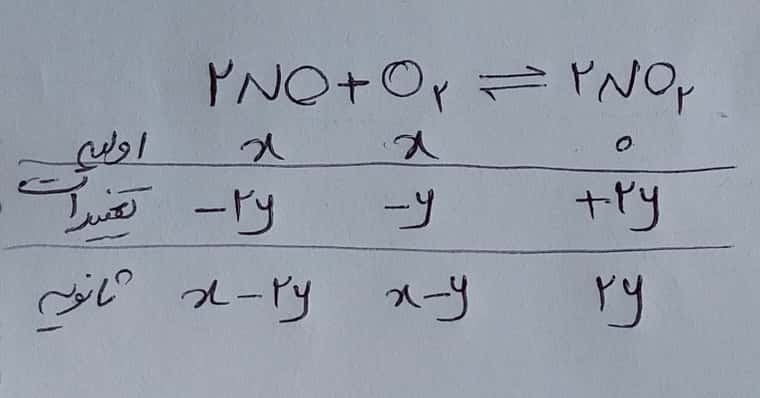 ۲NO + O۲ ⇌ ۲NO۲
اولیه x x ۰
تغییرات -۲y -y +۲y
ثانویه x-۲y x-y ۲y